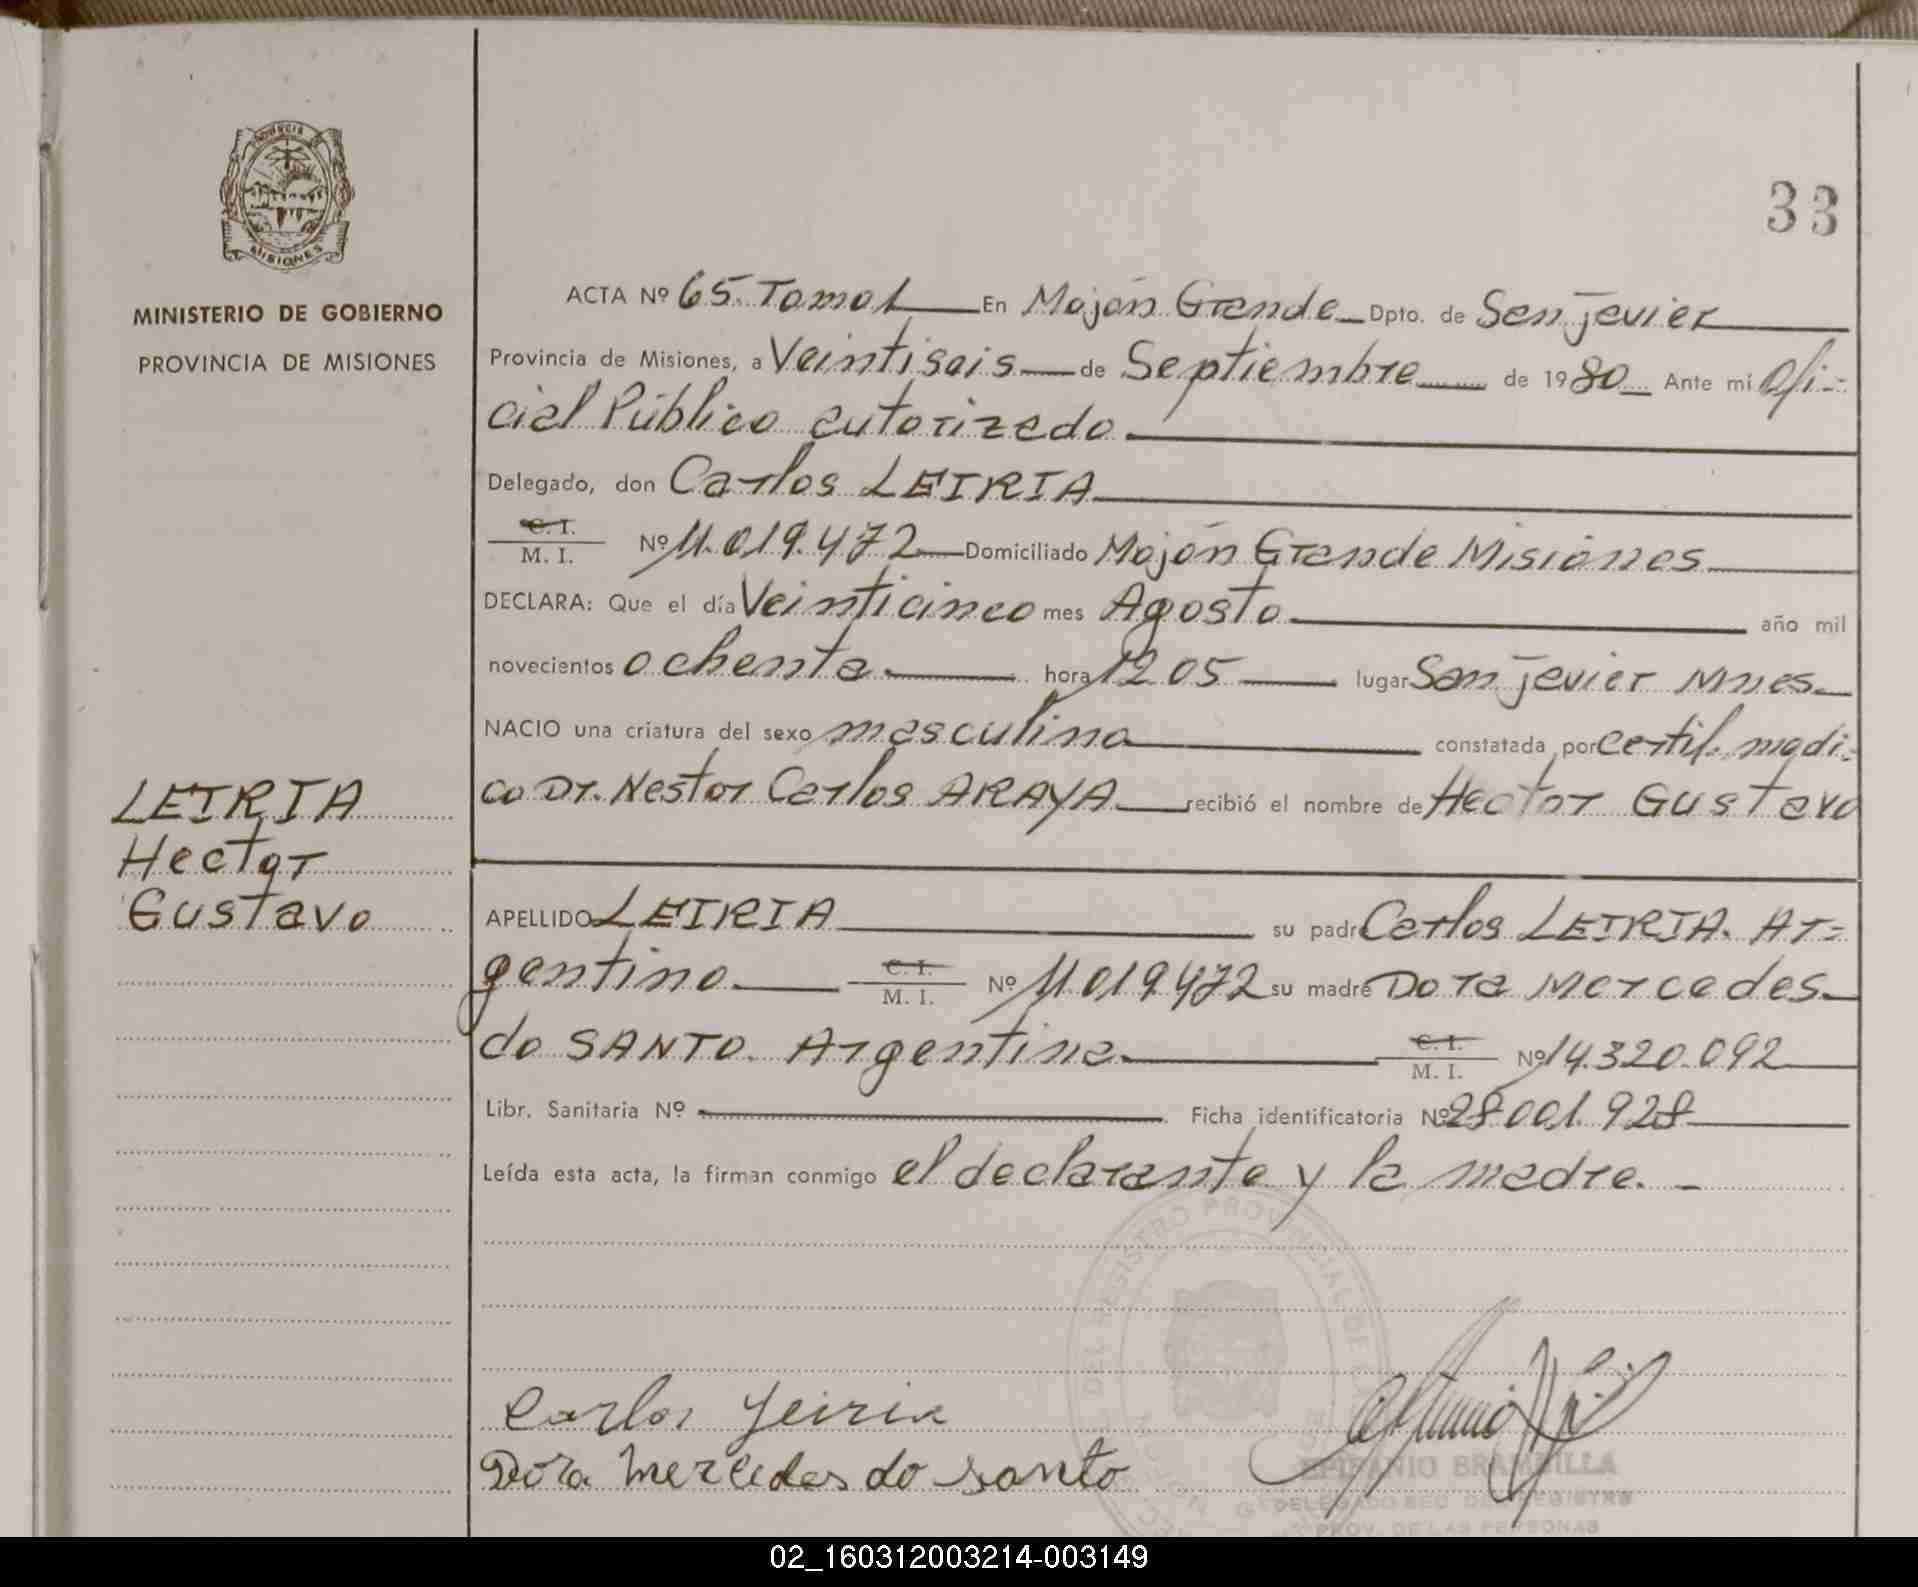 PROVINCIA
MISIONES
MINISTERIO DE GOBIERNO
PROVINCIA DE MISIONES
LEIRIA
Hector
Gustavo
33
ACTA Nº 65. Tomo 1 En Mojón Grande Dpto. de San Javier
Provincia de Misiones, a Veintiseis de Septiembre de 1980 Ante mi Ofi-
cial Público autorizado
Delegado, don Carlos LEIRIA
C. I.
M. I. Nº 11.019.472 Domiciliado Mojón Grande Misiones
DECLARA: Que el día Veinticinco mes Agosto año mil
novecientos ochenta hora 12 05 lugar San Javier Mnes
NACIO una criatura del sexo masculino constatada por certif. medi=
co Dr. Nestor Carlos ARAYA recibió el nombre de Hector Gustavo
APELLIDO LEIRIA su padre Carlos LEIRIA. Ar=
gentino C. I. M. I. Nº 11.019.472 su madre Dora Mercedes
do SANTO. Argentina C. I. M. I. Nº 14.320.092
Libr. Sanitaria Nº Ficha identificatoria Nº 28.001.928
Leída esta acta, la firman conmigo el declarante y la madre. -
Carlos Leiria
Dora Mercedes do Santo
DEL REGISTRO PROVINCIAL DE
EPIFANIO BRAMBILLA
DELEGADO SEC. DEL REGISTRO
PROV. DE LAS PERSONAS
02_160312003214-003149